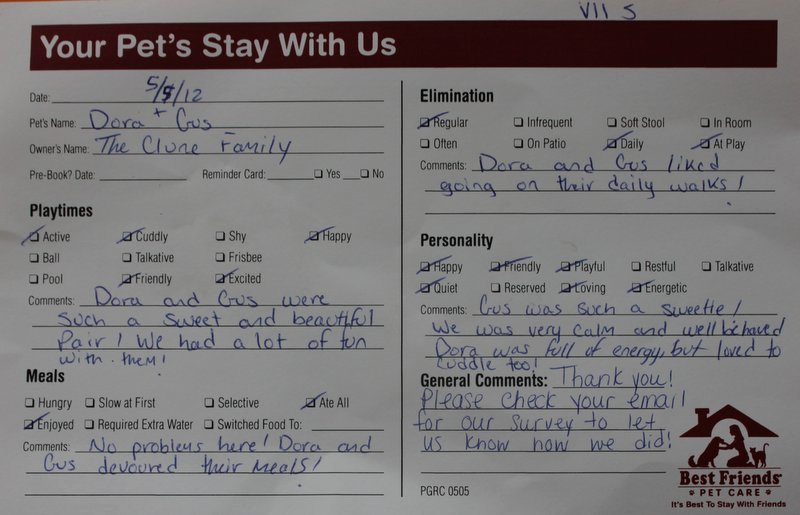 VII S
Your Pet's Stay With Us
Date: 5/5/12
Pet's Name: Dora + Gus
Owner's Name: The Clune Family
Pre-Book? Date: Reminder Card: Yes No
Playtimes
Active Cuddly Shy Happy
Ball Talkative Frisbee
Pool Friendly Excited
Comments: Dora and Gus were
such a sweet and beautiful
Pair! We had a lot of fun
with them!
Meals
Hungry Slow at First Selective Ate All
Enjoyed Required Extra Water Switched Food To:
Comments: No problems here! Dora and
Gus devoured their meals!
Elimination
Regular Infrequent Soft Stool In Room
Often On Patio Daily At Play
Comments: Dora and Gus liked
going on their daily walks!
Personality
Happy Friendly Playful Restful Talkative
Quiet Reserved Loving Energetic
Comments: Gus was such a sweetie!
We was very calm and well behaved
Dora was full of energy, but loved to
cuddle too!
General Comments: Thank you!
Please check your email
for our survey to let
us know how we did!
PGRC 0505
Best Friends
PET CARE
It's Best To Stay With Friends